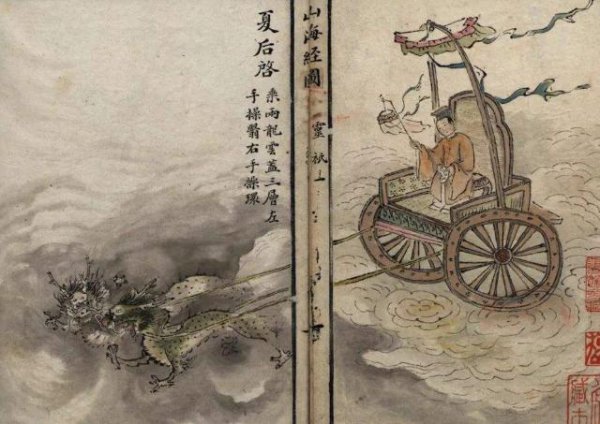 山海経圖 靈祇上
夏后啓
乘兩龍雲盖三層左
手操翳右手操環